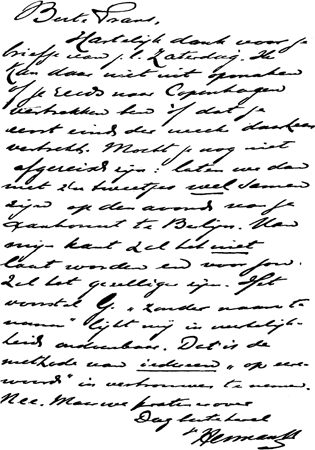 Beste Frans,
Hartelijk dank voor je
briefje van j.l. Zaterdag. Ik
kan daar niet uit opmaken
of je reeds naar Copenhagen
vertrokken ben of dat je
eerst eind der week daarheen
vertrekt. Mocht je nog niet
afgereisd zijn: laten we dan
met z'n tweetjes wel samen
zijn op den avond van je
aankomst te Berlijn. Van
mijn kant zal het niet
laat worden en voor jou
zal het gezellig zijn. Het
voorstel G. „zonder naam te
noemen” lijkt mij in werkelijk-
heid onbruikbaar. Dat is de
methode van iedereen „op eere-
woord” in vertrouwen te nemen.
Nee. Maar we praten erover
Dag beste kerel
Herman